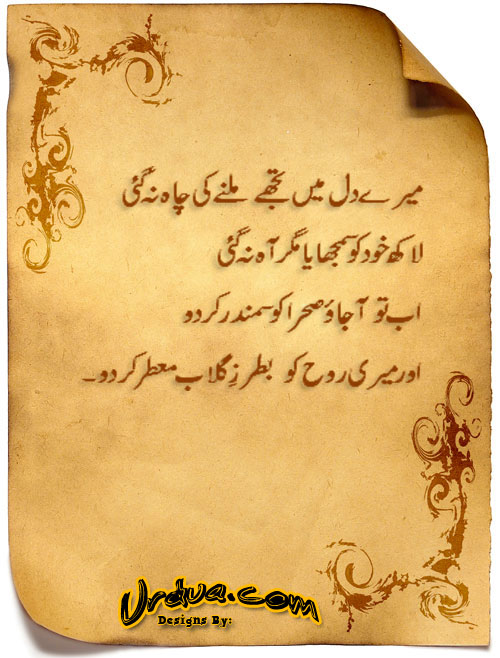 میرے دل میں تجھے ملنے کی چاہ نہ گئی
لاکھ خود کو سمجھایا مگر آہ نہ گئی
اب تو آجاؤ صحرا کو سمندر کر دو
اور میری روح کو بطرزِ گلاب معطر کر دو۔
Urdua.com
Designs By: